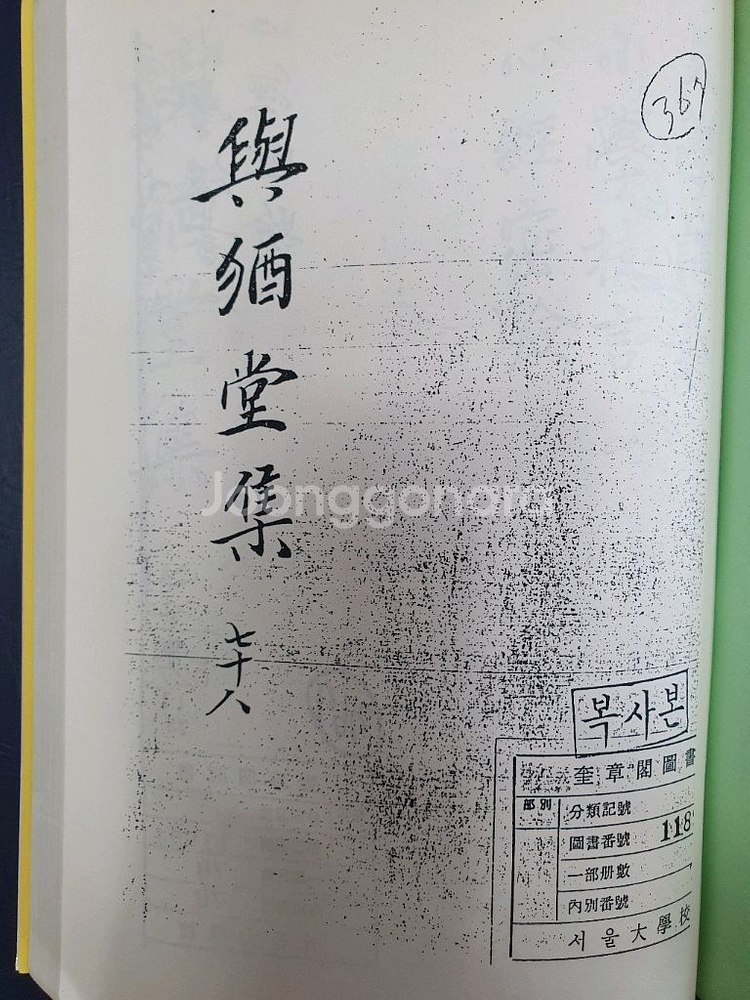 367
與猶堂集 七十八
Joonggonara
복사본
奎章閣圖書
部別
分類記號
圖書番號 118
一部册數
內別番號
서울大學校